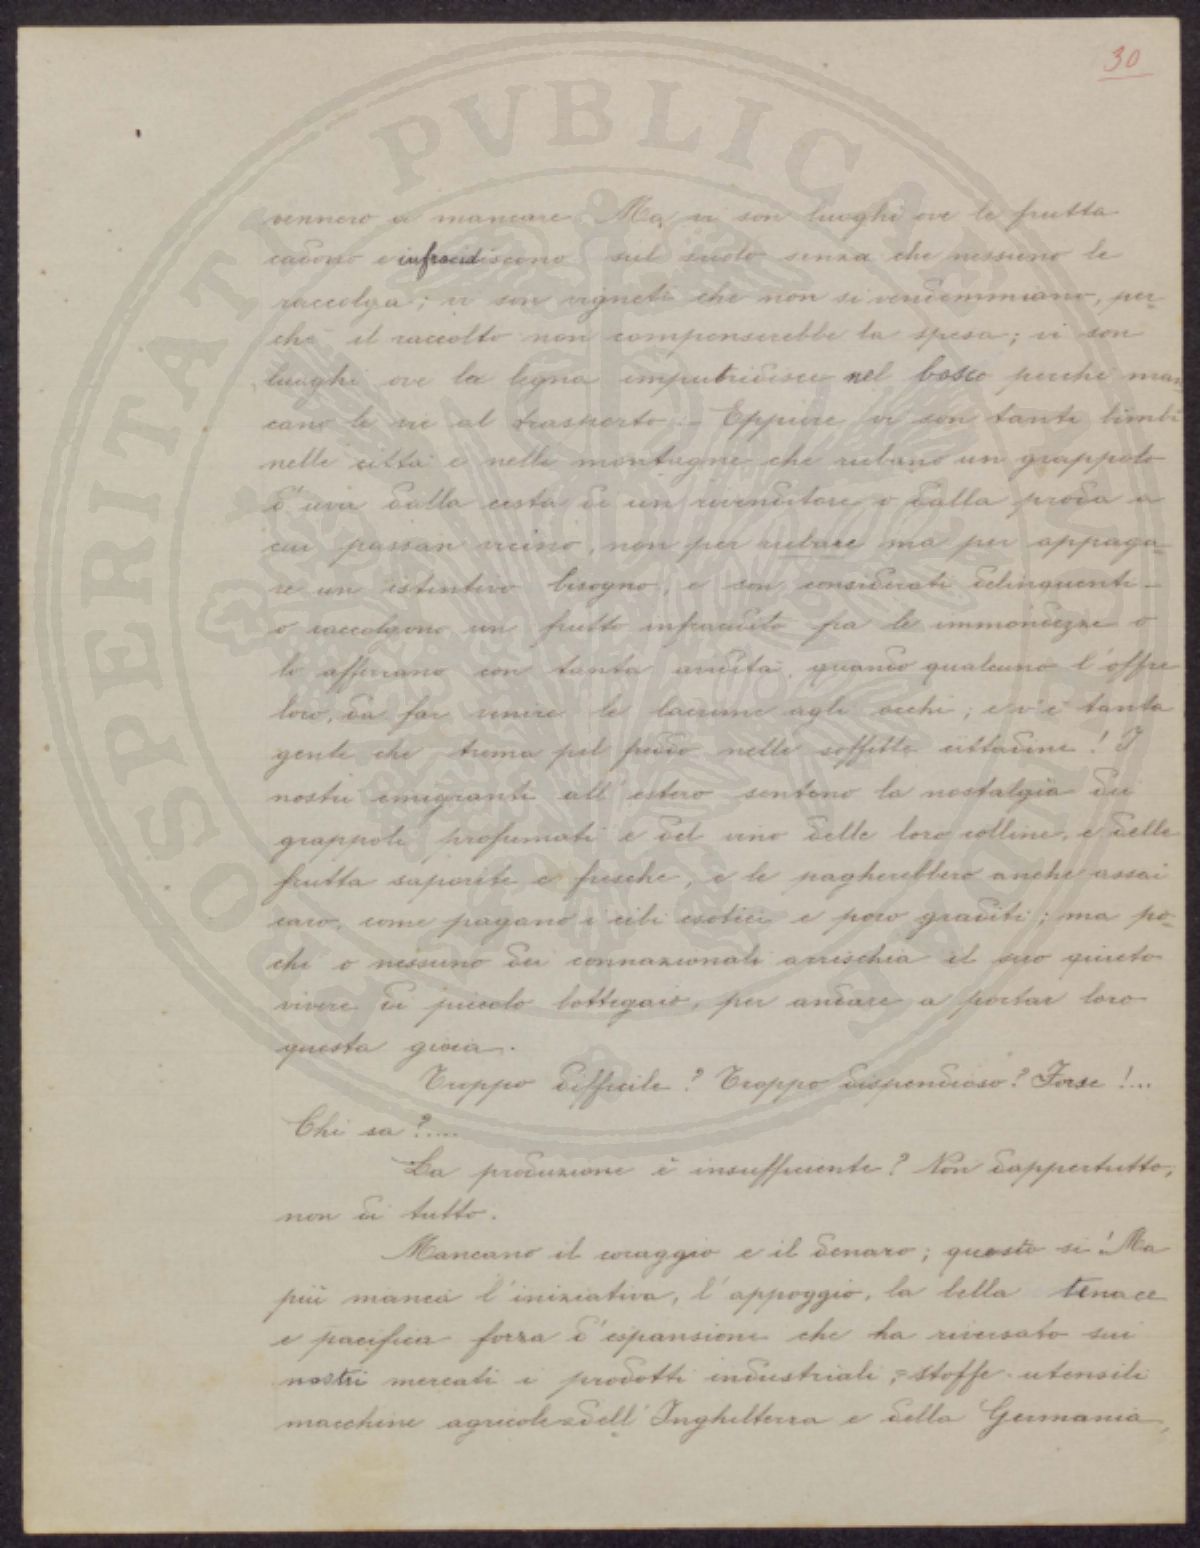 30
vennero a mancare. Ma, vi son luoghi ove le frutta
cadono e infracidiscono sul suolo senza che nessuno le
raccolga; vi son vigneti che non si vendemmiano, per-
chè il raccolto non compenserebbe la spesa; vi son
luoghi ove la legna imputridisce nel bosco perchè man-
cano le vie al trasporto. - Eppure vi son tanti bimbi
nelle città e nelle montagne che rubano un grappolo
d'uva dalla cesta di un rivenditore o dalla proda a
cui passan vicino, non per rubare ma per appaga-
re un istintivo bisogno, e son considerati delinquenti -
o raccolgono un frutto infracidito fra le immondezze o
lo afferrano con tanta avidità, quando qualcuno l'offre
loro, da far venire le lacrime agli occhi; e v'è tanta
gente che trema pel freddo nelle soffitte cittadine! I
nostri emigranti all'estero sentono la nostalgia dei
grappoli profumati e del vino delle loro colline, e delle
frutta saporite e fresche, e le pagherebbero anche assai
caro, come pagano i cibi esotici e poco graditi; ma po-
chi o nessuno dei connazionali arrischia il suo quieto
vivere di piccolo bottegaio, per andare a portar loro
questa gioia.
Troppo difficile? Troppo dispendioso? Forse!...
Chi sa?....
La produzione è insufficiente? Non dappertutto,
non di tutto.
Mancano il coraggio e il denaro; questo si! Ma
più manca l'iniziativa, l'appoggio, la bella tenace
e pacifica forza d'espansione che ha riversato sui
nostri mercati i prodotti industriali, = stoffe - utensili
macchine agricole = dell'Inghilterra e della Germania,
PROSPERITATI PVBLICAE